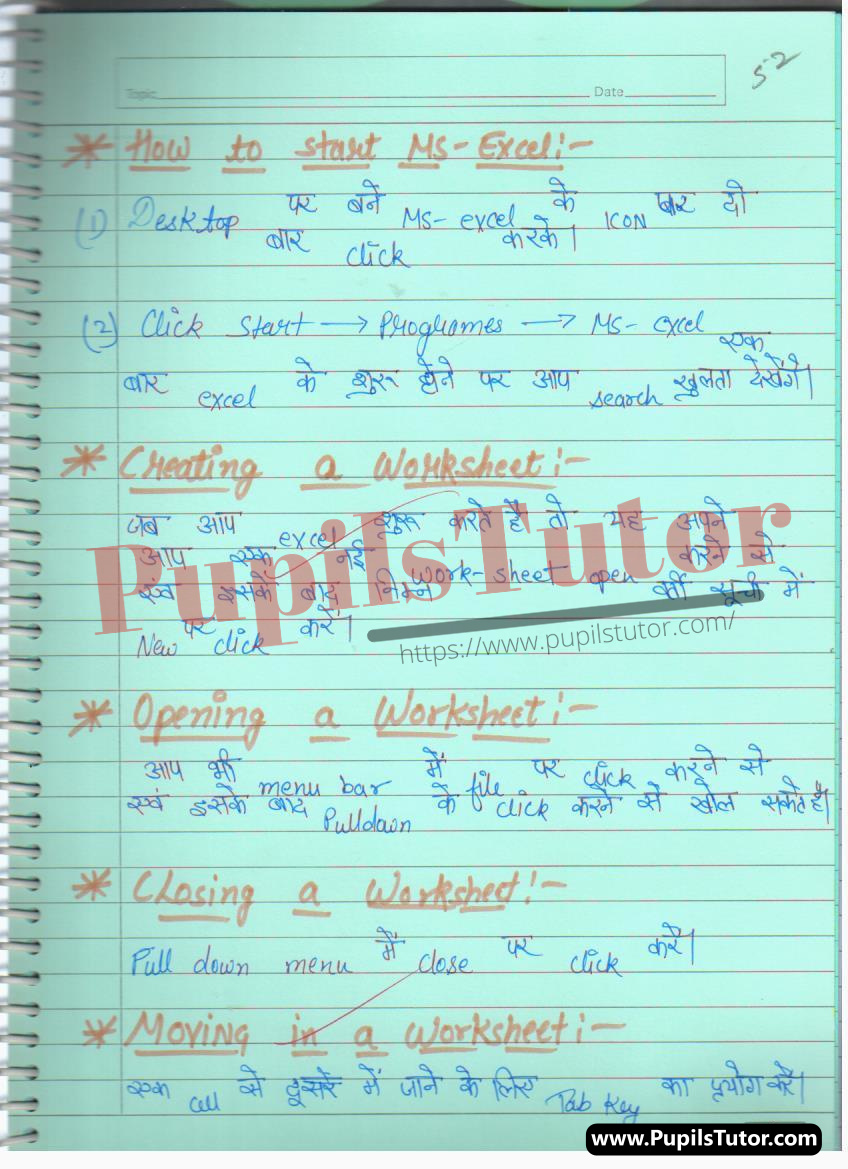 52
Topic Date
* How to start MS-Excel:-
(1) Desktop पर बने MS-excel के ICON बार दो
बार click करके।
(2) Click start → Programes → MS-excel
एक
बार excel के शुरू होने पर आप search खुलता देखेंगे।
* Creating a Worksheet:-
जब आप excel शुरू करते है तो यह अपने
आप एक नई work-sheet open करने से
एंव इसके बाद निम्न वर्की सूची में
New पर click करें।
PupilsTutor
https://www.pupilstutor.com/
* Opening a Worksheet:-
आप भी menu bar में file पर click करने से
एवं इसके बाद Pulldown के click करने से खोल सकते है।
* Closing a Worksheet:-
Pull down menu में close पर click करें।
* Moving in a Worksheet:-
एक cell से दूसरे में जाने के लिए Tab Key का प्रयोग करें।
www.PupilsTutor.com